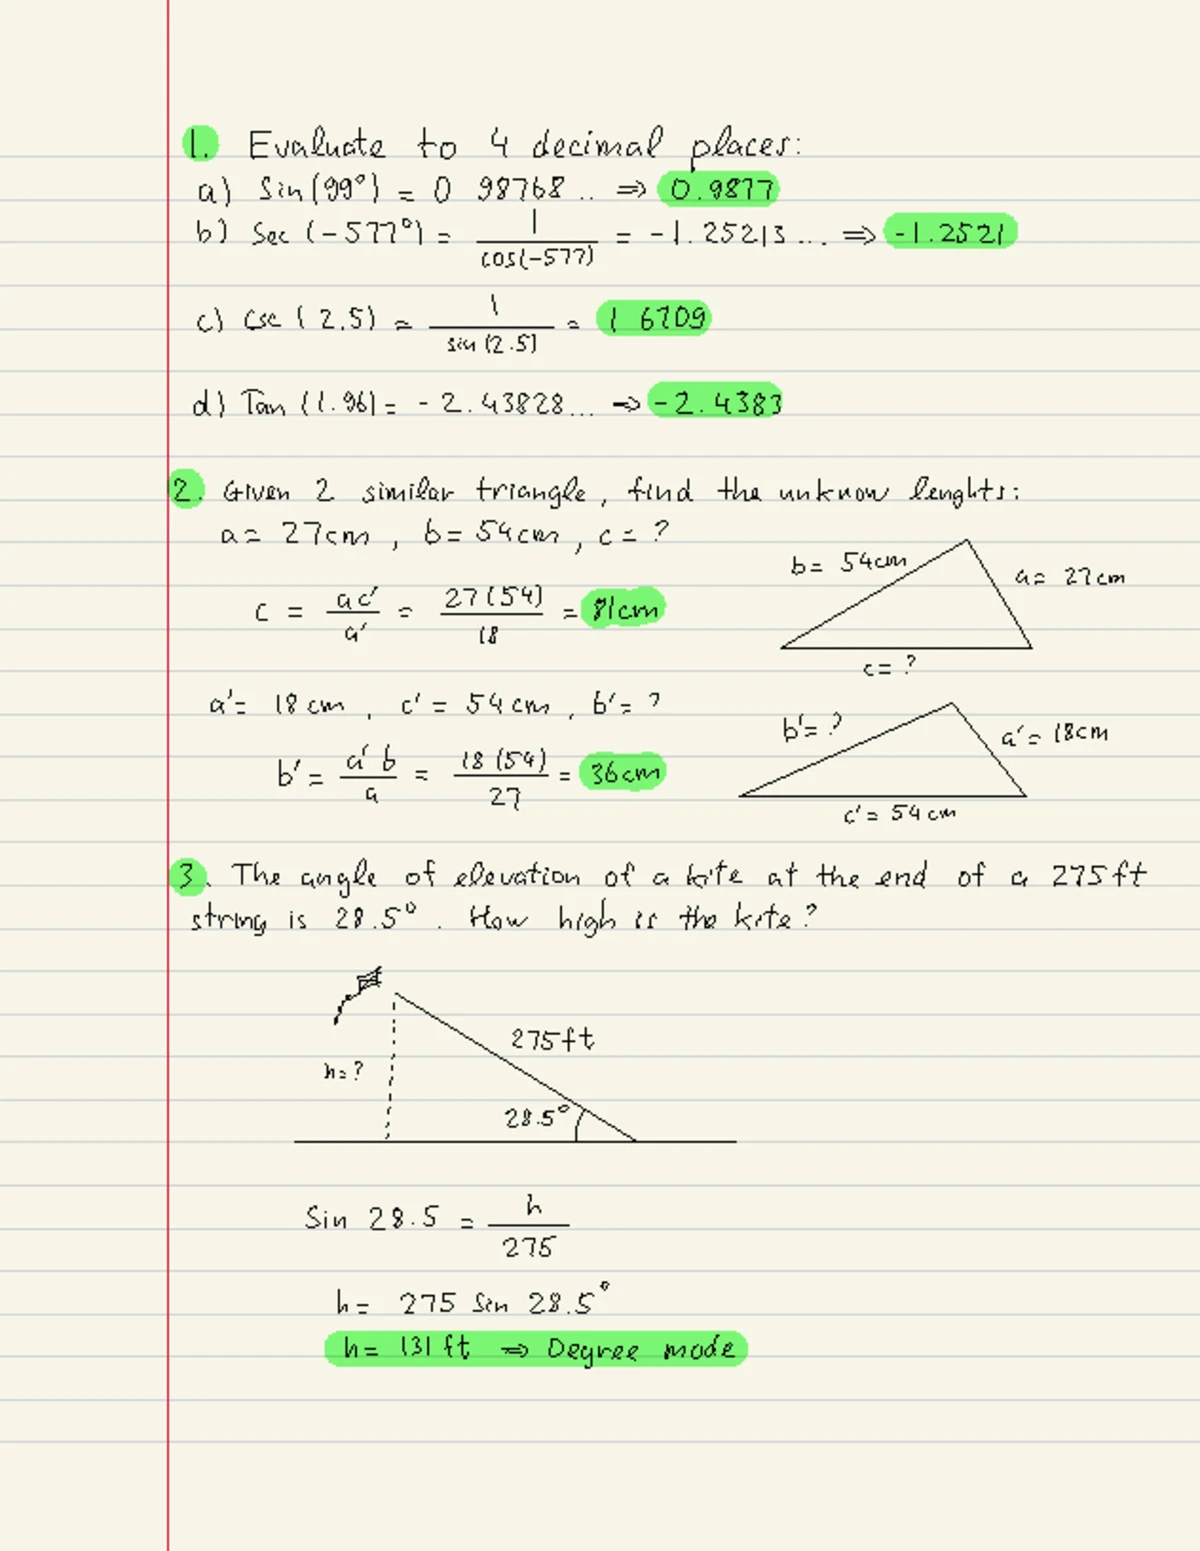 1. Evaluate to 4 decimal places:
a) Sin(99°) = 0 98768.. ⇒ 0.9877
b) Sec (-577°) = 1/cos(-577) = -1.25213... ⇒ -1.2521
c) Csc (2.5) = 1/sin(2.5) = 1 6709
d) Tan (1.96) = -2.43828... ⇒ -2.4383
2. Given 2 similar triangle, find the unknow lenghts:
a = 27cm, b = 54cm, c = ?
b = 54cm
a = 27cm
c = ac'/a' = 27(54)/18 = 81cm
c = ?
a' = 18cm, c' = 54cm, b' = ?
b' = ?
a' = 18cm
b' = a'b/a = 18(54)/27 = 36cm
c' = 54cm
3. The angle of elevation of a kite at the end of a 275ft
string is 28.5°. How high is the kite?
275ft
h = ?
28.5°
Sin 28.5 = h/275
h = 275 Sin 28.5°
h = 131 ft ⇒ Degree mode